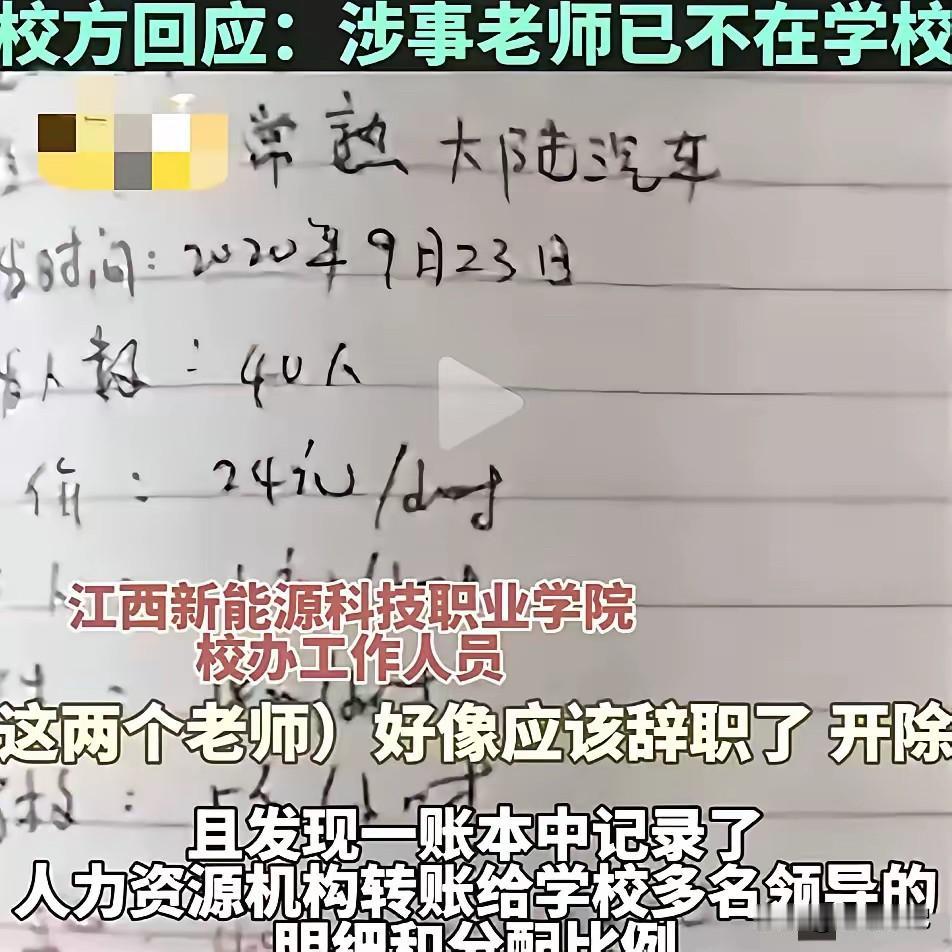 校方回应：涉事老师已不在学校
常熟 大陆汽车
时间：2020年9月23日
人数：40人
价：24元/小时
江西新能源科技职业学院
校办工作人员
这两个老师）好像应该辞职了 开除
校：
且发现一账本中记录了
人力资源机构转账给学校多名领导的
明细和分配比例